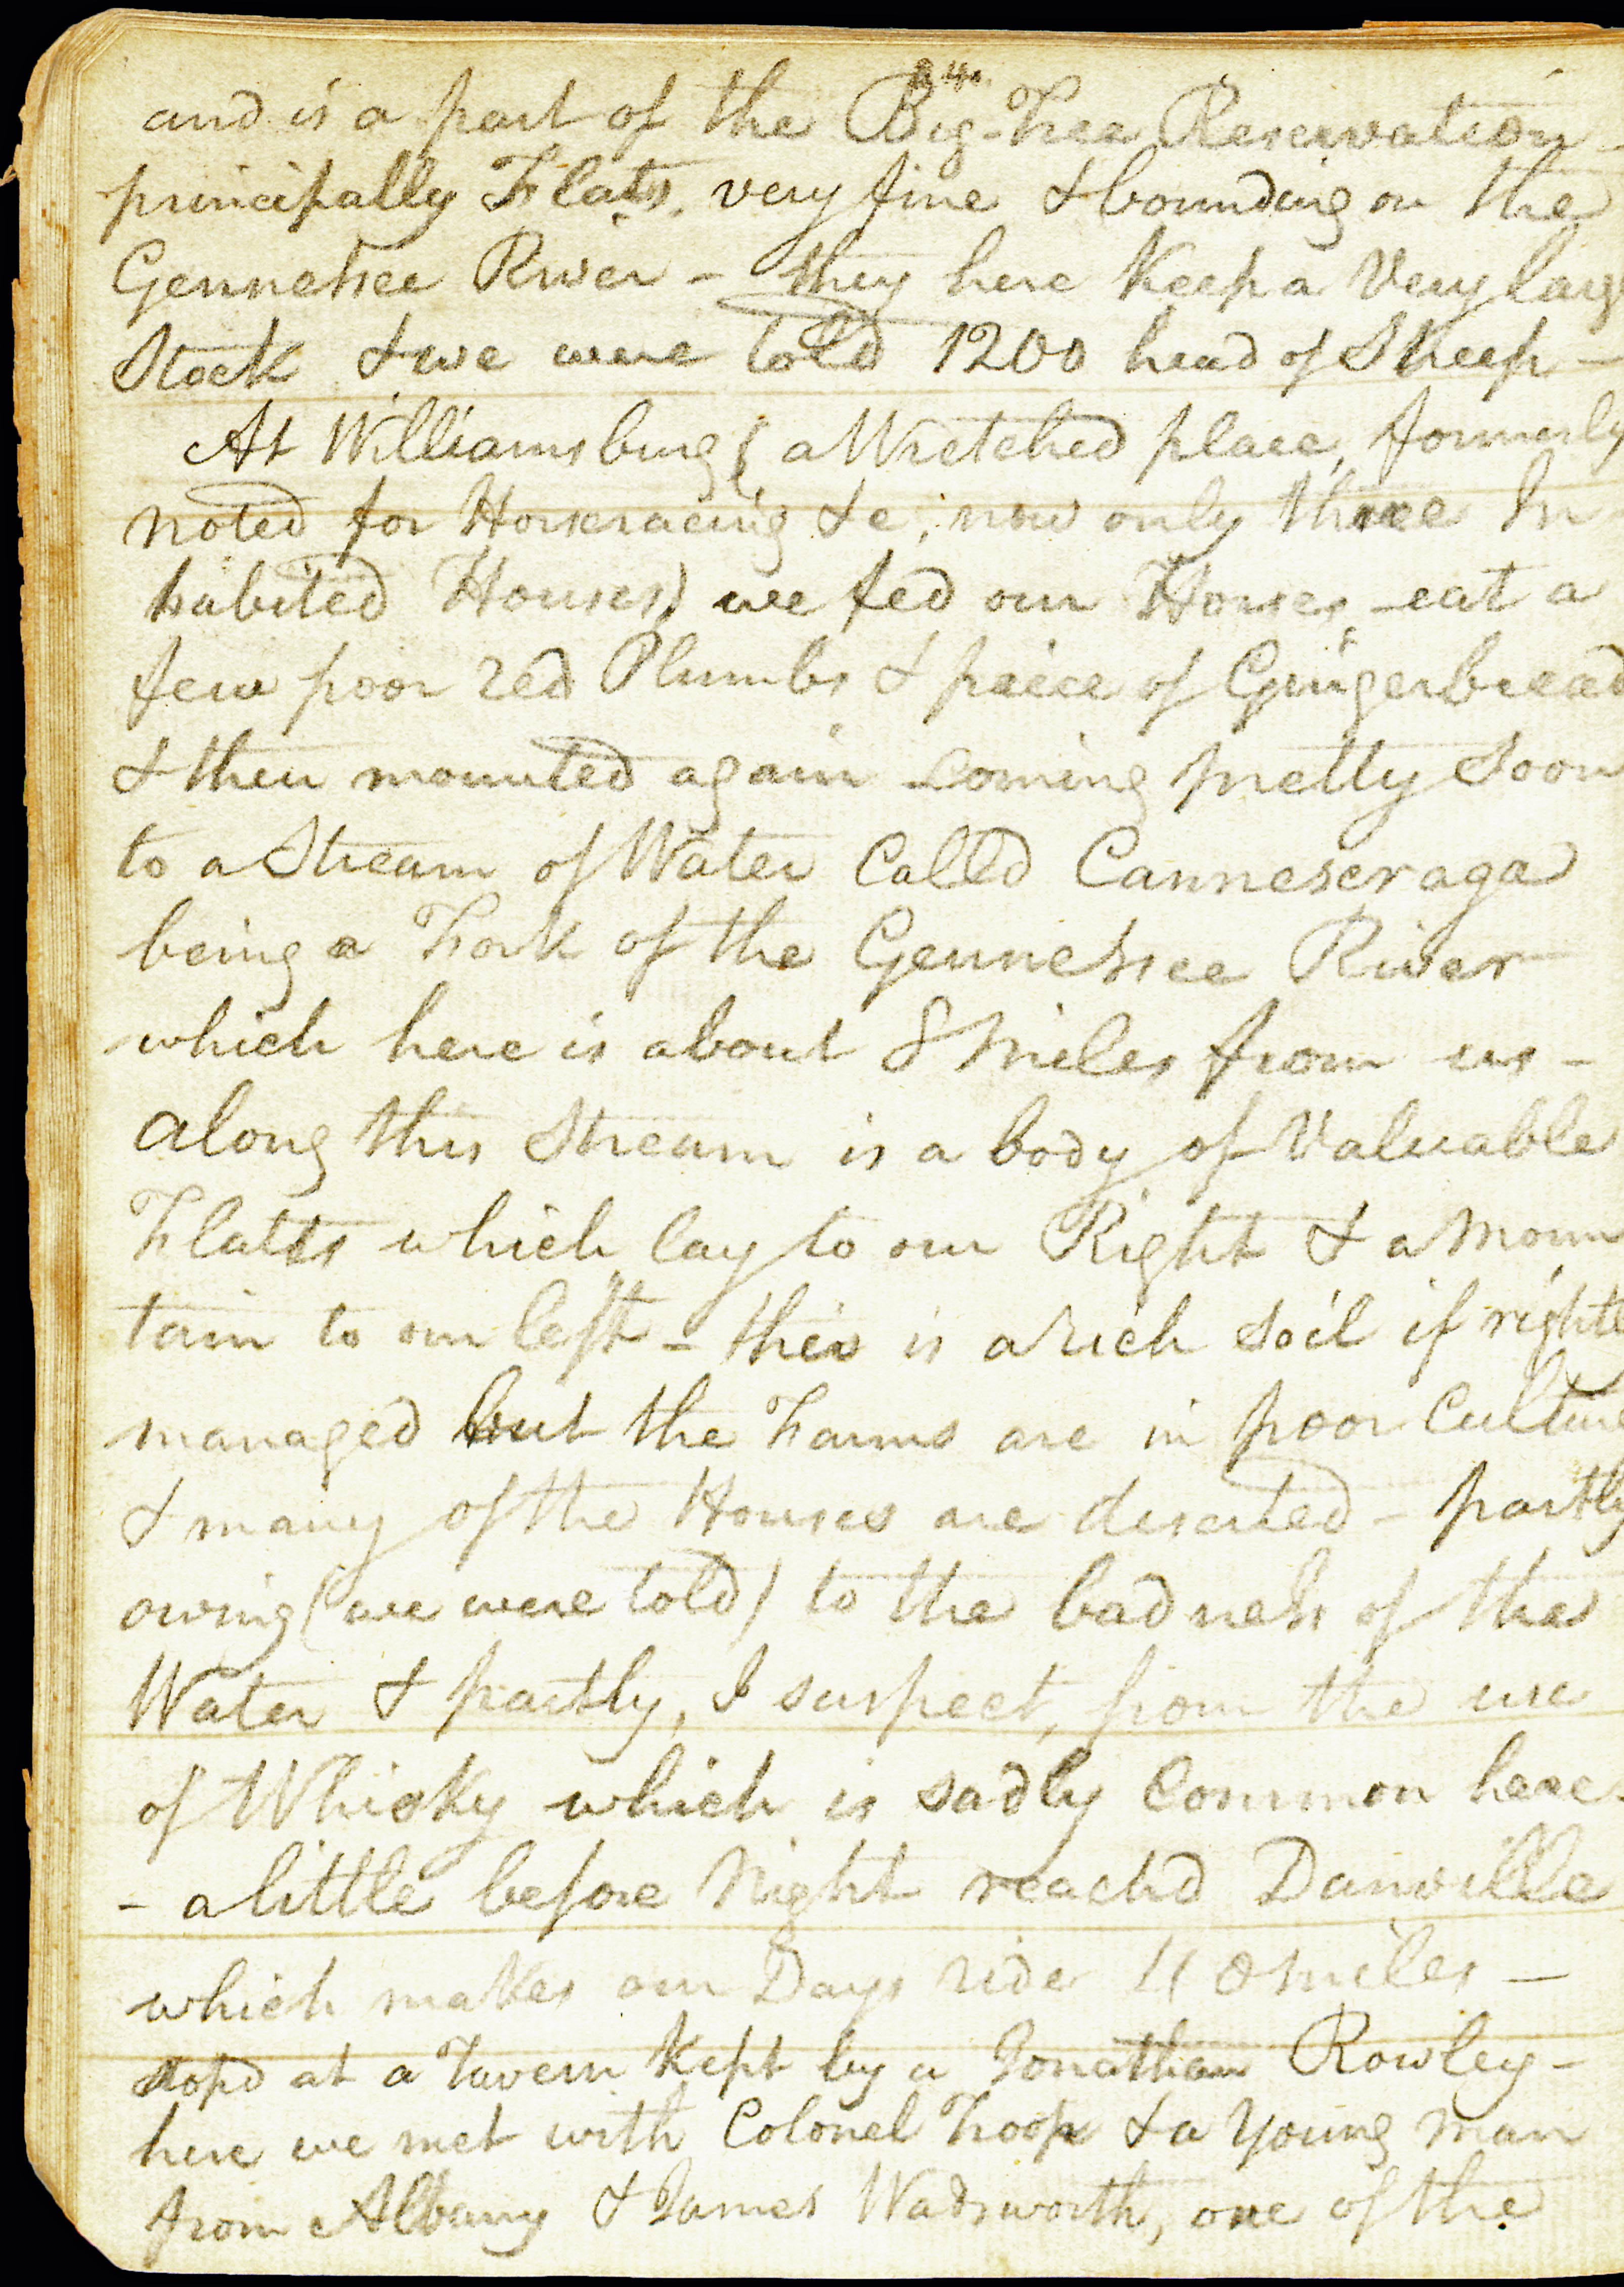 24
and is a part of the Big-Tree Reservation -
principally Flats, very fine & bounding on the
Gennessee River - they here Keep a Very larg
Stock & we were told 1200 head of Sheep -
At Williamsburg ( a Wretched place, formerly
noted for Horseracing &c, now only three In
habited Houses) we fed our Horses, eat a
few poor red Plumbs & peice of Gingerbread
& then mounted again coming pretty soon
to a Stream of Water Called Canneseraga
being a Fork of the Gennessee River
which here is about 8 Miles from us -
along this Stream is a body of Valuable
Flatts which lay to our Right & a Moun
tain to our left - this is a rich Soil if right
managed but the Farms are in poor Culture
& many of the Houses are deserted - partly
owing (we were told) to the badness of the
Water & partly, I suspect, from the use
of Whisky which is sadly Common here.
- a little before Night reachd Danville
which makes our Days ride 40 Miles -
stopd at a Tavern Kept by a Jonathan Rowley -
here we met with Colonel Troop & a Young Man
from Albany & James Wadsworth, one of the